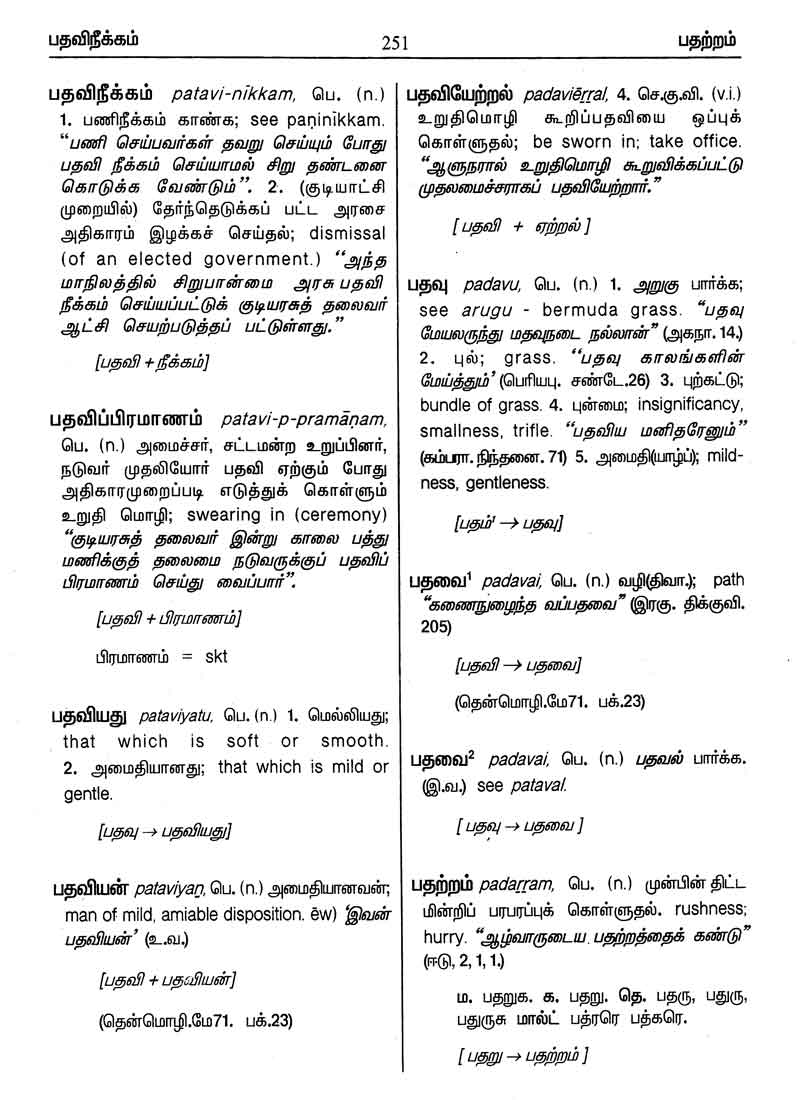 பதவிநீக்கம்
251
பதற்றம்
பதவிநீக்கம் patavi-nīkkam, பெ. (n.)
1. பணிநீக்கம் காண்க; see paṇinīkkam.
“பணி செய்பவர்கள் தவறு செய்யும் போது
பதவி நீக்கம் செய்யாமல் சிறு தண்டனை
கொடுக்க வேண்டும்”. 2. (குடியாட்சி
முறையில்) தேர்ந்தெடுக்கப் பட்ட அரசை
அதிகாரம் இழக்கச் செய்தல்; dismissal
(of an elected government.) “அந்த
மாநிலத்தில் சிறுபான்மை அரசு பதவி
நீக்கம் செய்யப்பட்டுக் குடியரசுத் தலைவர்
ஆட்சி செயற்படுத்தப் பட்டுள்ளது.”
[பதவி + நீக்கம்]
பதவிப்பிரமாணம் patavi-p-pramāṇam,
பெ. (n.) அமைச்சர், சட்டமன்ற உறுப்பினர்,
நடுவர் முதலியோர் பதவி ஏற்கும் போது
அதிகாரமுறைப்படி எடுத்துக் கொள்ளும்
உறுதி மொழி; swearing in (ceremony)
“குடியரசுத் தலைவர் இன்று காலை பத்து
மணிக்குத் தலைமை நடுவருக்குப் பதவிப்
பிரமாணம் செய்து வைப்பார்”.
[பதவி + பிரமாணம்]
பிரமாணம் = skt
பதவியது pataviyatu, பெ. (n.) 1. மெல்லியது;
that which is soft or smooth.
2. அமைதியானது; that which is mild or
gentle.
[பதவு → பதவியது]
பதவியன் pataviyaṉ, பெ. (n.) அமைதியானவன்;
man of mild, amiable disposition. ēw) ‘இவன்
பதவியன்’ (உ.வ.)
[பதவி + பதவியன்]
(தென்மொழி.மே71. பக்.23)
பதவியேற்றல் padaviēṟṟal, 4. செ.கு.வி. (v.i.)
உறுதிமொழி கூறிப்பதவியை ஒப்புக்
கொள்ளுதல்; be sworn in; take office.
“ஆளுநரால் உறுதிமொழி கூறுவிக்கப்பட்டு
முதலமைச்சராகப் பதவியேற்றார்.”
[ பதவி + ஏற்றல் ]
பதவு padavu, பெ. (n.) 1. அறுகு பார்க்க;
see arugu - bermuda grass. “பதவு
மேயலருந்து மதவுநடை நல்லான்” (அகநா. 14.)
2. புல்; grass. “பதவு காலங்களின்
மேய்த்தும்’ (பெரியபு. சண்டே.26) 3. புற்கட்டு;
bundle of grass. 4. புன்மை; insignificancy,
smallness, trifle. “பதவிய மனிதரேனும்”
(கம்பரா. நிந்தனை. 71) 5. அமைதி(யாழ்ப்); mild-
ness, gentleness.
[பதம்¹ → பதவு]
பதவை¹ padavai, பெ. (n.) வழி(திவா.); path
“கணைநுழைந்த வப்பதவை” (இரகு. திக்குவி.
205)
[பதவி → பதவை]
(தென்மொழி.மே71. பக்.23)
பதவை² padavai, பெ. (n.) பதவல் பார்க்க.
(இ.வ.) see pataval.
[ பதவு → பதவை ]
பதற்றம் padaṟṟam, பெ. (n.) முன்பின் திட்ட
மின்றிப் பரபரப்புக் கொள்ளுதல். rushness;
hurry. “ஆழ்வாருடைய பதற்றத்தைக் கண்டு”
(ஈடு, 2, 1, 1.)
ம. பதறுக. க. பதறு. தெ. பதரு, பதுரு,
பதுருசு மால்ட் பத்ரரெ பத்கரெ.
[ பதறு → பதற்றம் ]